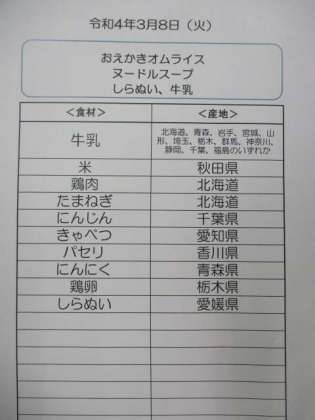 令和4年3月8日（火）
おえかきオムライス
ヌードルスープ
しらぬい、牛乳
＜食材＞ ＜産地＞
牛乳 北海道、青森、岩手、宮城、山
形、埼玉、栃木、群馬、神奈川、
静岡、千葉、福島のいずれか
米 秋田県
鶏肉 北海道
たまねぎ 北海道
にんじん 千葉県
きゃべつ 愛知県
パセリ 香川県
にんにく 青森県
鶏卵 栃木県
しらぬい 愛媛県